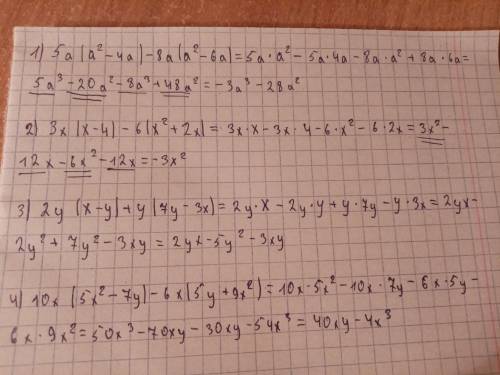 1) 5a(a²-4a)-8a(a²-6a)=5a·a²-5a·4a-8a·a²+8a·6a=
5a³-20a²-8a³+48a²=-3a³-28a²
2) 3x(x-4)-6(x²+2x)=3x·x-3x·4-6·x²-6·2x=3x²-
12x-6x²-12x=-3x²
3) 2y(x-y)+y(7y-3x)=2y·x-2y·y+y·7y-y·3x=2yx-
2y²+7y²-3xy=2yx-5y²-3xy
4) 10x(5x²-7y)-6x(5y+9x²)=10x·5x²-10x·7y-6x·5y-
6x·9x²=50x³-70xy-30xy-54x³=40xy-4x³